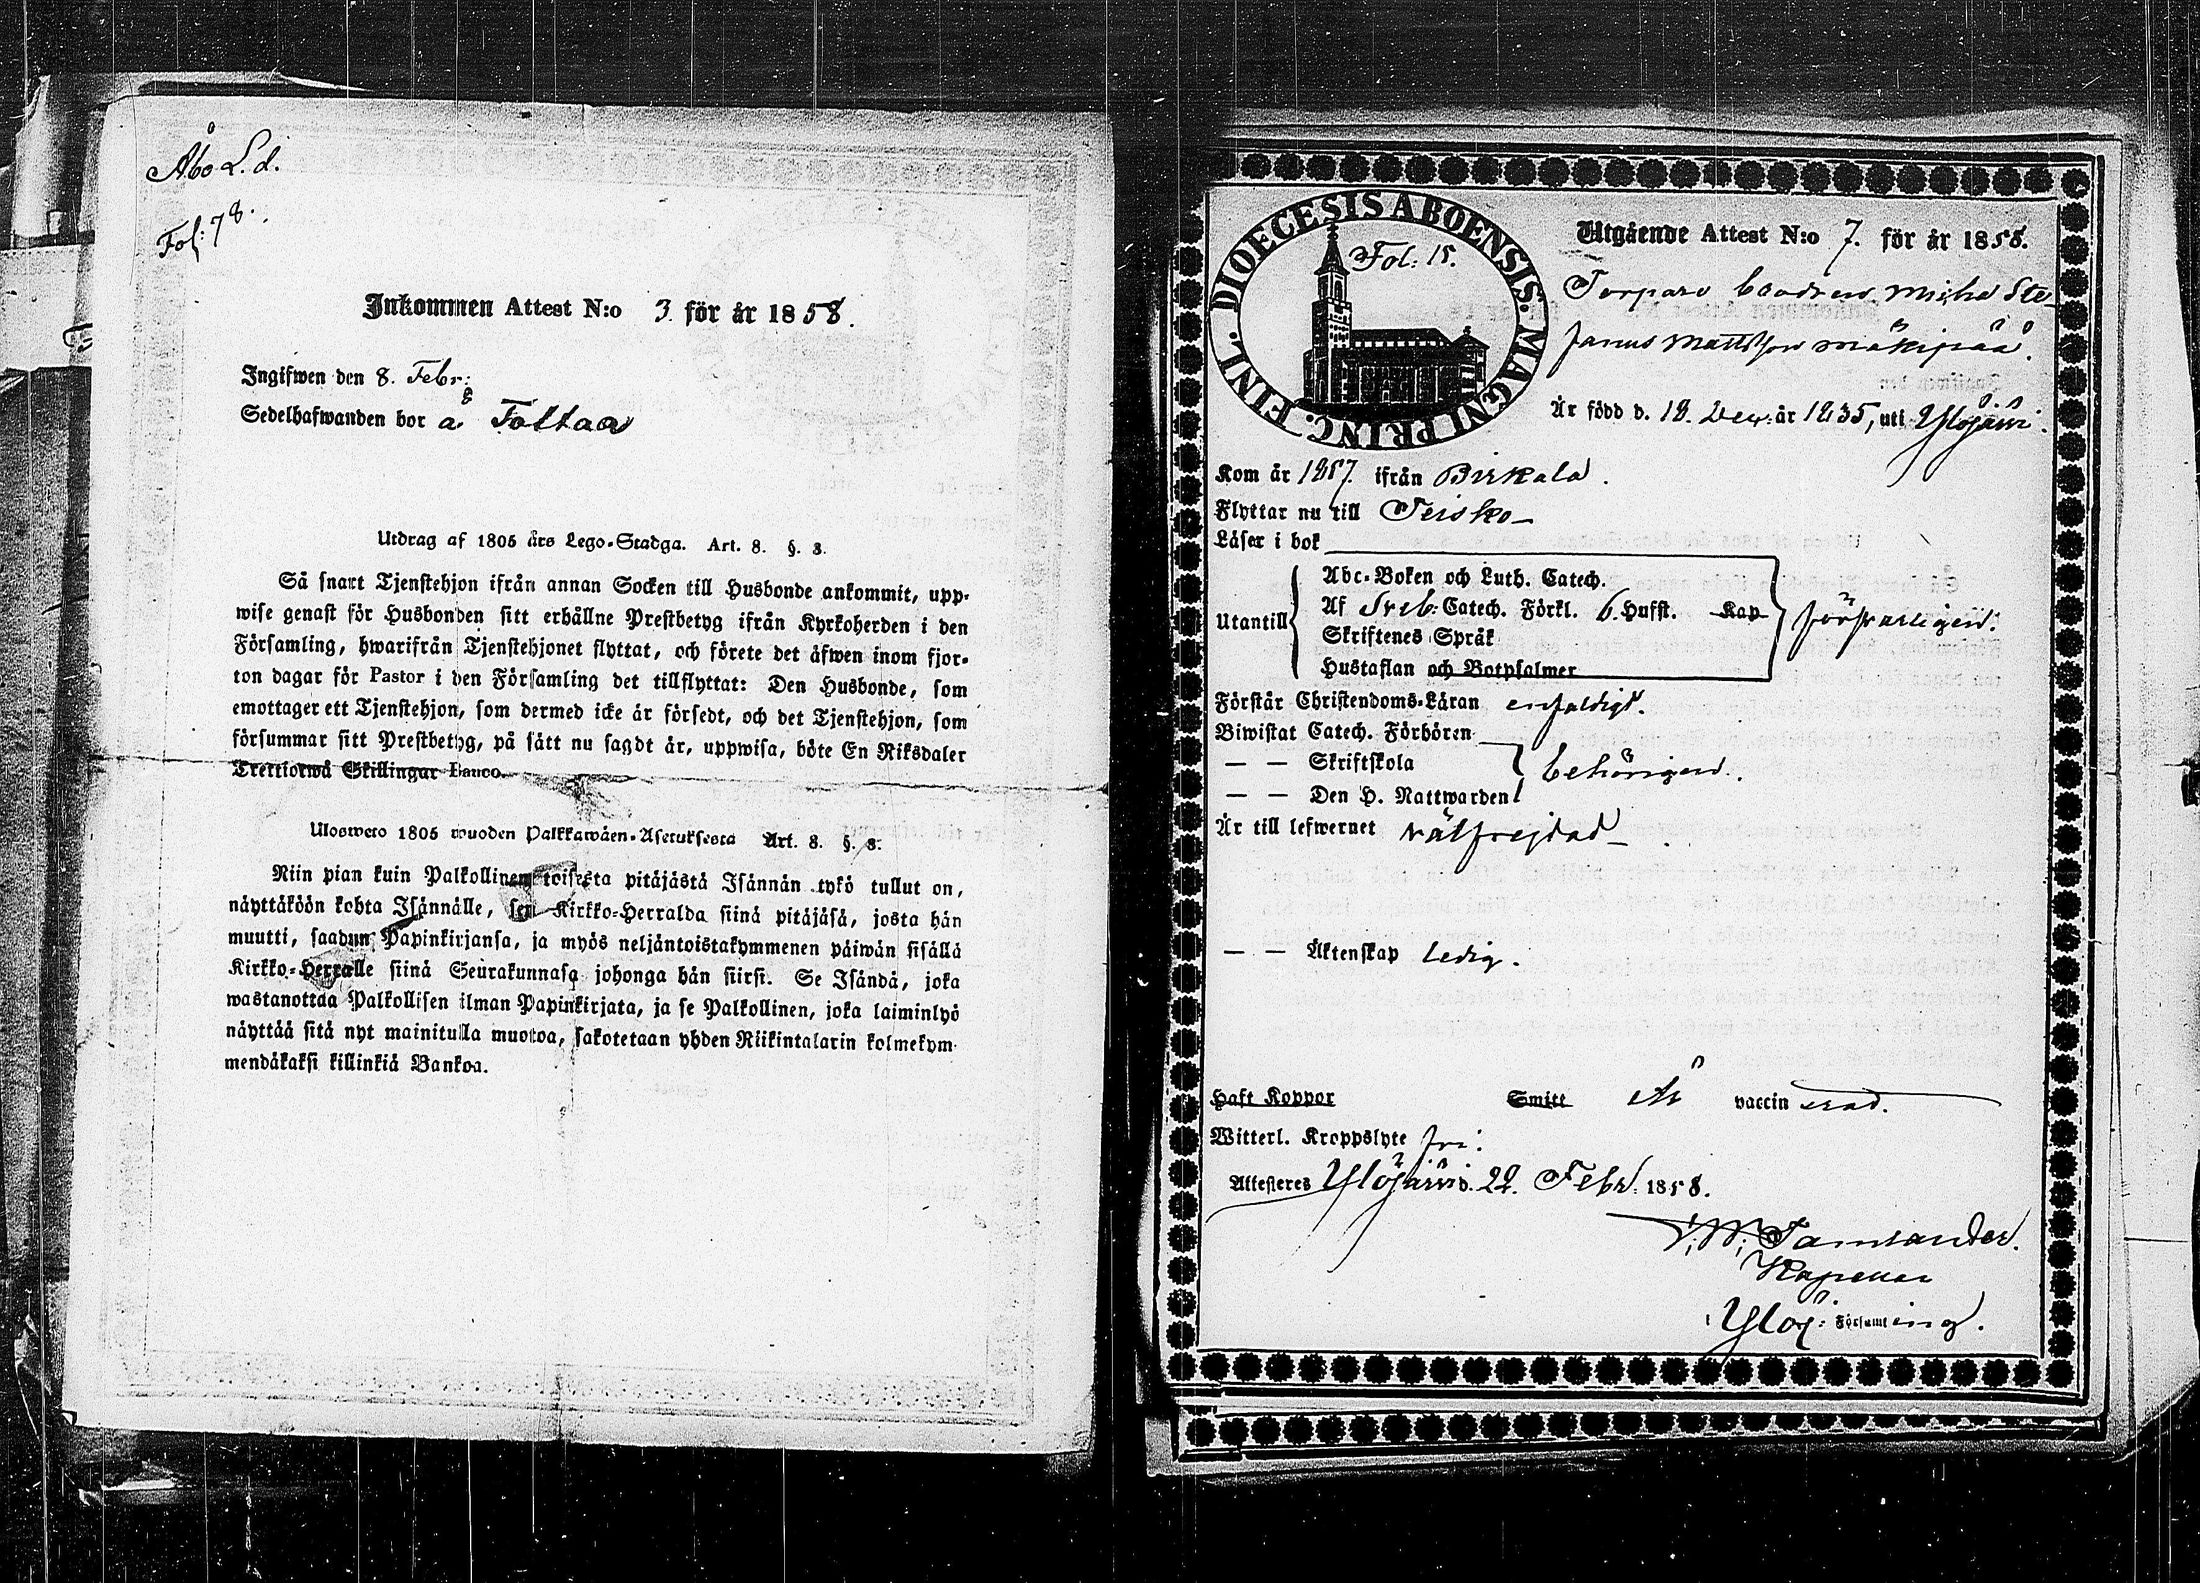 Åbo L. d.
Fol: 78.
Inkommen Attest N:o 3. för år 1858.
Ingifwen den 8. Febr:
Sedelhafwanden bor å
Utdrag af 1805 års Lego-Stadga. Art. 8. §. 3.
Så snart Tjenstehjon ifrån annan Socken till Husbonde ankommit, upp-
wise genast för Husbonden sitt erhållne Prestbetyg ifrån Kyrkoherden i den
Församling, hwarifrån Tjenstehjonet flyttat, och förete det äfwen inom fjor-
ton dagar för Pastor i den Församling det tillflyttat: Den Husbonde, som
emottager ett Tjenstehjon, som dermed icke är försedt, och det Tjenstehjon, som
försummar sitt Prestbetyg, på sätt nu sagdt är, uppwisa, böte En Riksdaler
Trettiotwå Skillingar Banco.
Ulosweto 1805 wuoden Palkkawäen-Asetuksesta Art. 8. §. 3.
Niin pian kuin Palkollinen toisesta pitäjästä Isännän tykö tullut on,
näyttäköön kohta Isännälle, sen Kirkko-Herralda siinä pitäjäsä, josta hän
muutti, saadun Papinkirjansa, ja myös neljäntoistakymmenen päiwän sisällä
Kirkko-Herralle siinä Seurakunnasa johonga hän siirsi. Se Isändä, joka
wastanottaa Palkollisen ilman Papinkirjata, ja se Palkollinen, joka laiminlyö
näyttää sitä nyt mainitulla muotoa, sakotetaan yhden Riikintalarin kolmekym-
mendäkaksi killinkiä Bankoa.
DIOECESIS ABOENSIS. MAGNI PRINC. FINL.
Fol: 15.
Utgående Attest N:o 7. för år 1858.
Mattsson Mäkipää.
Är född d. 18. Dec: år 1835, uti Ylöjärvi.
Kom år 1857. ifrån Birkala.
Flyttar nu till Teisko
Läser i bok
Utantill
Abc-Boken och Luth. Catech.
Af Sveb: Catech. Förkl. 6. Hufst. Kap
Skriftenes Språk
Hustaflan och Botpsalmer
försvarligen.
Förstår Christendoms-Läran enfaldigt.
Biwistat Catech. Förhören
— — Skriftskola
— — Den H. Nattwarden
behörigen.
Är till lefwernet välfrejdad
— — Äktenskap ledig.
Haft Koppor Smitt Är vaccinerad.
Witterl. Kroppslyte fri.
Attesteres Ylöjärvi d. 22. Febr. 1858.
Kapellan
i Ylöj: Församling.